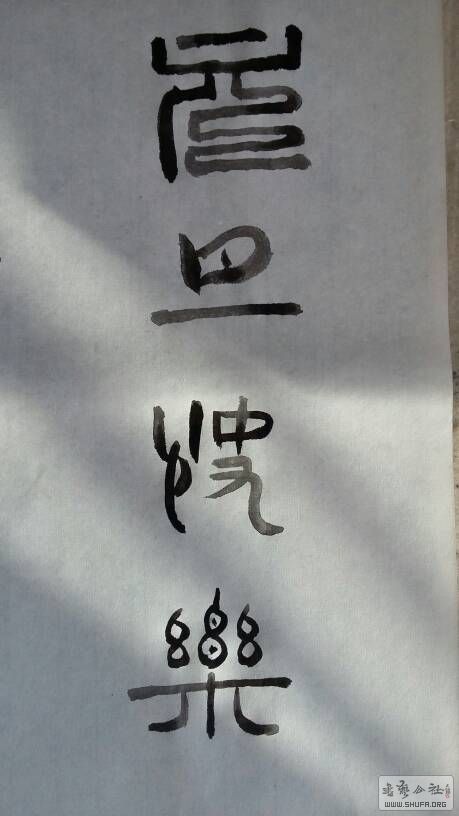 元旦快樂
书艺公社
WWW.SHUFA.ORG